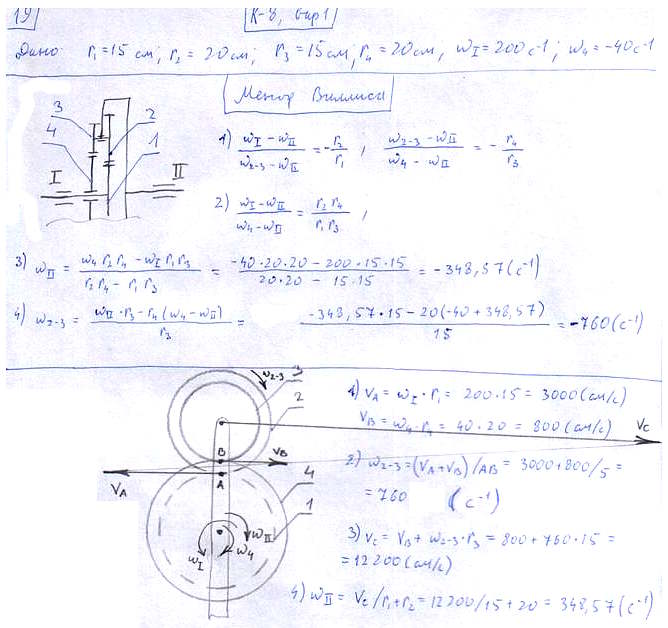 19
К-8, вар1
Дано: r₁=15 см; r₂ = 20 см; r₃ = 15 см; r₄ = 20 см, ω_I = 200 с⁻¹; ω₄ = -40 с⁻¹
Метод Виллиса
3
4
2
1
I
II
1) (ω_I - ω_II)/(ω₂₋₃ - ω_II) = -r₂/r₁ , (ω₂₋₃ - ω_II)/(ω₄ - ω_II) = - r₄/r₃
2) (ω_I - ω_II)/(ω₄ - ω_II) = r₂ r₄/r₁ r₃ ,
3) ω_II = (ω₄ r₂ r₄ - ω_I r₁ r₃)/(r₂ r₄ - r₁ r₃) = (-40·20·20 - 200·15·15)/(20·20 - 15·15) = -348,57 (с⁻¹)
4) ω₂₋₃ = (ω_II·r₃ - r₄(ω₄ - ω_II))/r₃ = (-348,57·15 - 20(-40 + 348,57))/15 = -760 (с⁻¹)
ω₂₋₃
3
2
V_C
B
V_B
A
V_A
4
1
ω_II
ω₄
ω_I
1) V_A = ω_I · r₁ = 200·15 = 3000 (см/с)
V_B = ω₄·r₄ = 40·20 = 800 (см/с)
2) ω₂₋₃ = (V_A + V_B)/AB = 3000+800/5 =
= 760 (с⁻¹)
3) V_C = V_B + ω₂₋₃·r₃ = 800 + 760·15 =
= 12200 (см/с)
4) ω_II = V_C/r₁+r₂ = 12200/15+20 = 348,57 (с⁻¹)